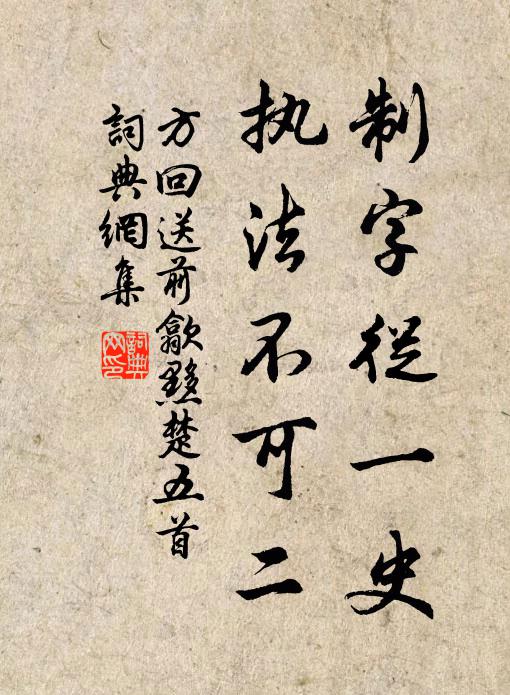 制字從一史
执法不可二
方回送前歙黟楚五首
詞典網集
詞典
网印